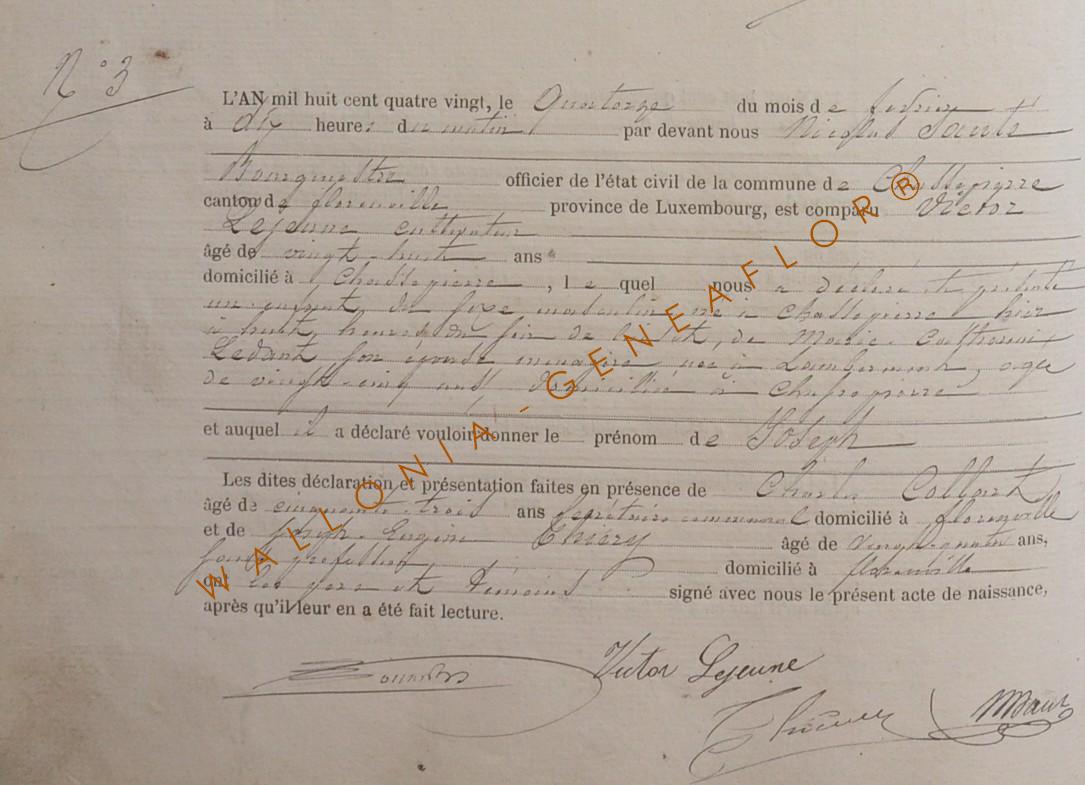 N° 3
L'AN mil huit cent quatre vingt, le Quatorze du mois de février
à dix heures du matin par devant nous Nicolas
Bourgmestre officier de l'état civil de la commune de Chassepierre
canton de florenville province de Luxembourg, est comparu Victor
Lejeune cultivateur
âgé de vingt-huit ans
domicilié à Chassepierre, le quel nous a déclaré et présenté
un enfant du sexe masculin né à Chassepierre hier
à huit heures du soir de de Marie Catherine
Ledant son épouse ménagère née à Lambermont, agée
de vingt-cinq ans domiciliée à Chassepierre
et auquel il a déclaré vouloir donner le prénom de Joseph
Les dites déclaration et présentation faites en présence de Charles Collart
âgé de cinquante-trois ans secrétaire communal domicilié à florenville
et de Joseph Eugène Thiéry âgé de vingt-quatre ans,
sans profession domicilié à florenville
ont les père et témoins signé avec nous le présent acte de naissance,
après qu'il leur en a été fait lecture.
Victor Lejeune
WALLONIA-GENEAFLOR®